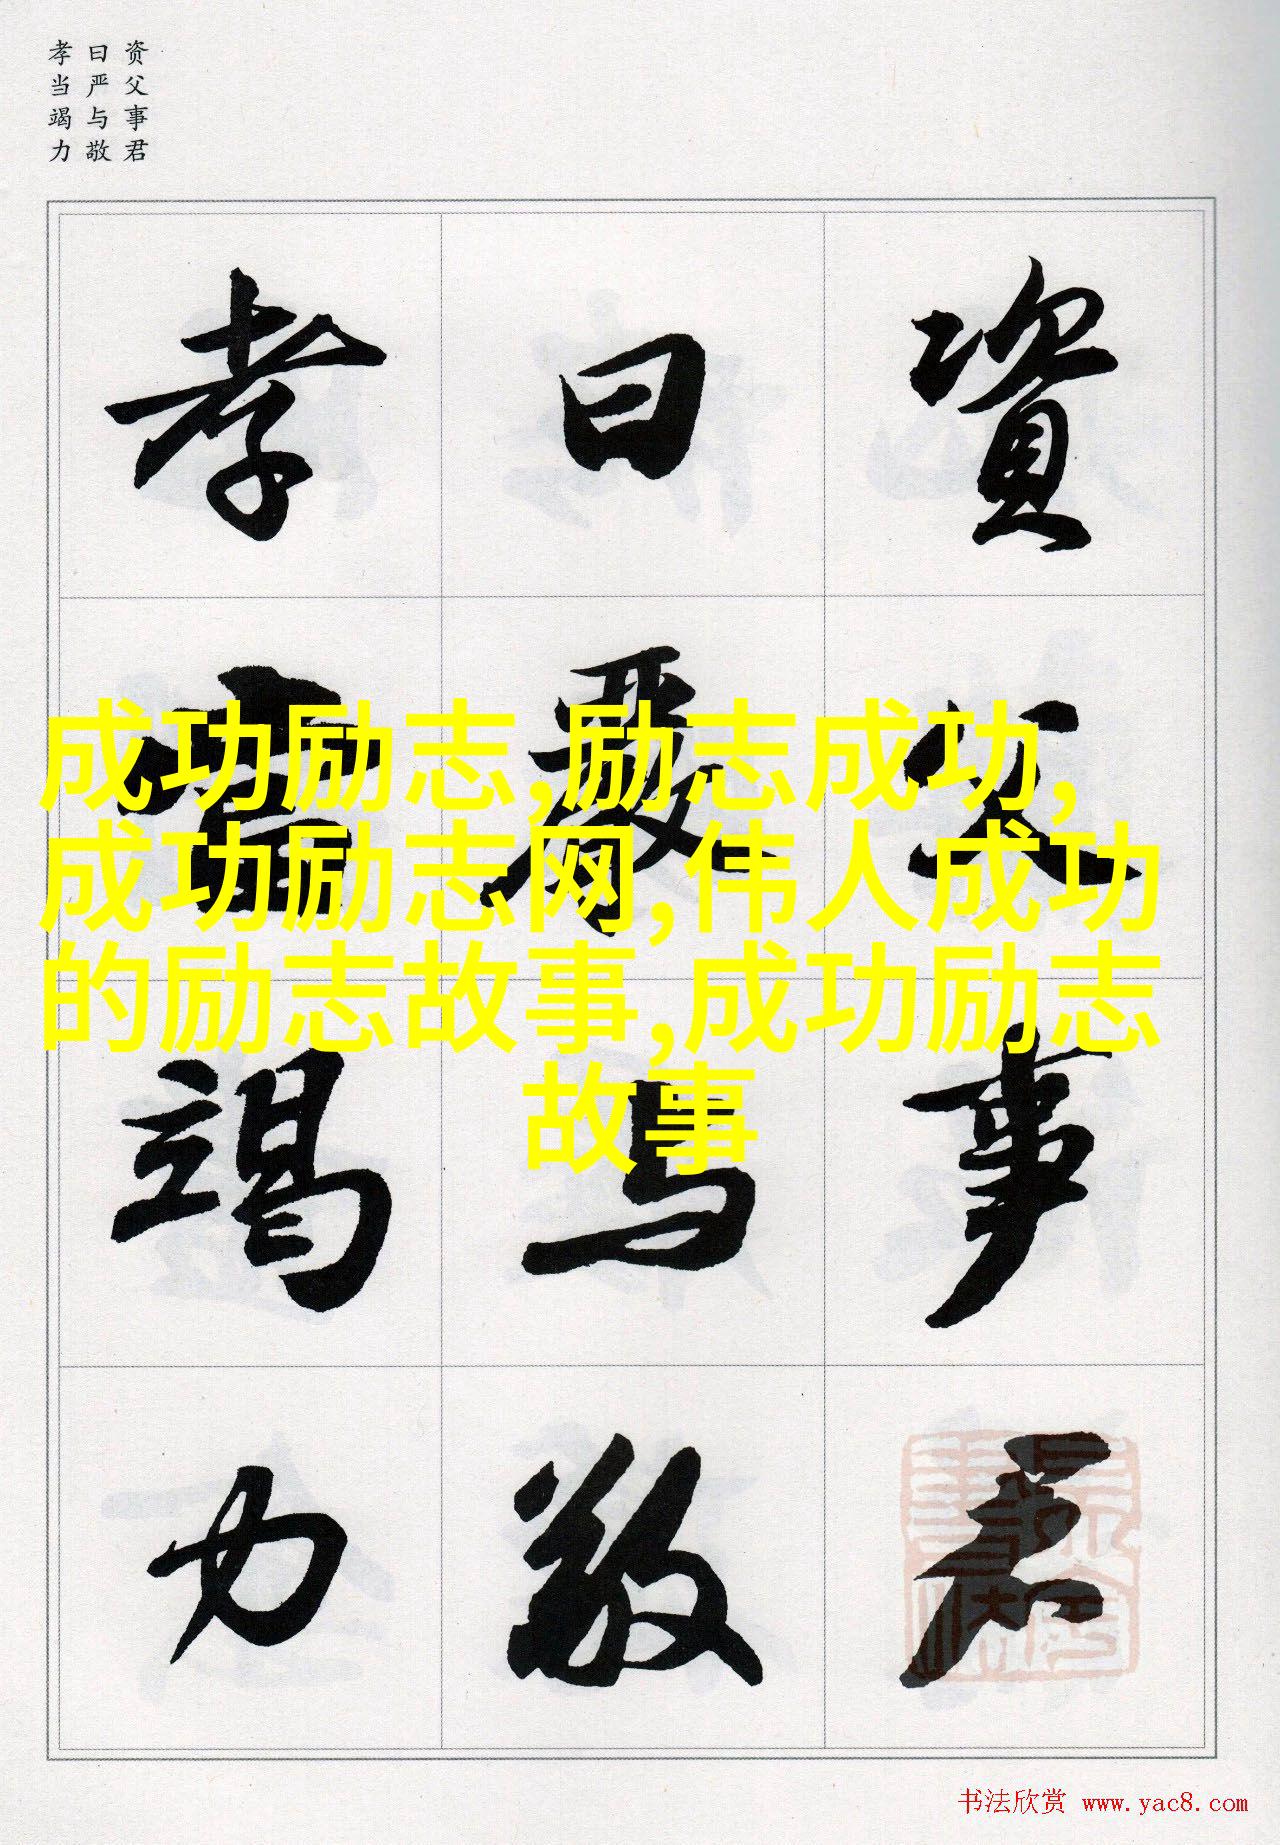 资父事君
曰严与敬
孝当竭力
資父事君
曰嚴与敬
孝當竭力
成功励志,励志成功,
成功励志网,伟人成功
的励志故事,成功励志
故事
书法欣赏 www.yac8.com